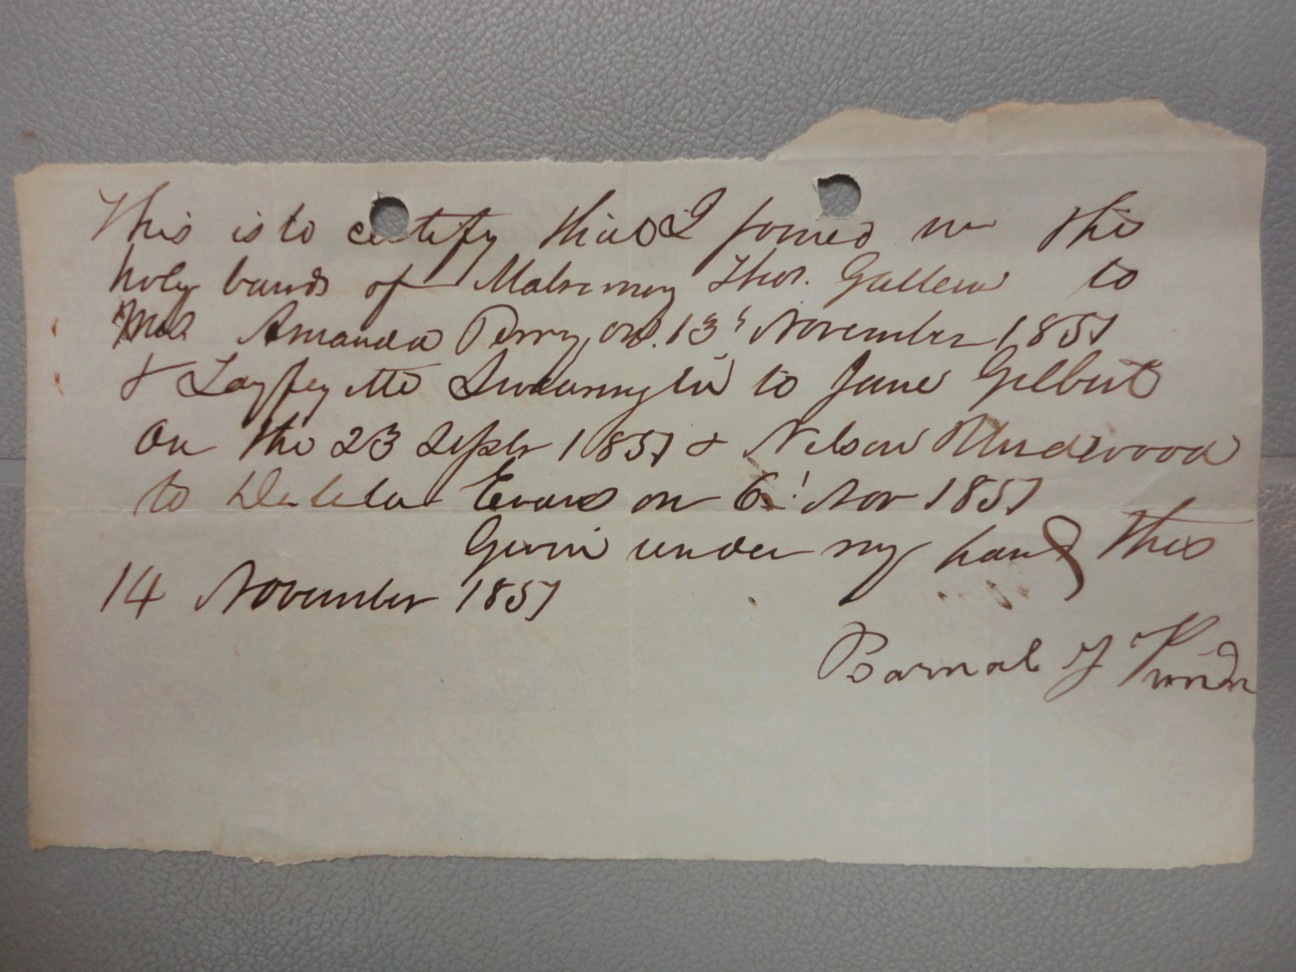 This is to certify that I joined in the
holy bands of Matrimony Thos. Gallew to
Amanda Perry on 13 November 1857
& Layfeyette Swearingin to Jane Gilbert
on the 23 Septr 1857 & Nelson Underwood
to Delila Evans on 6 Nov 1857
Given under my hand this
14 November 1857
Barnab